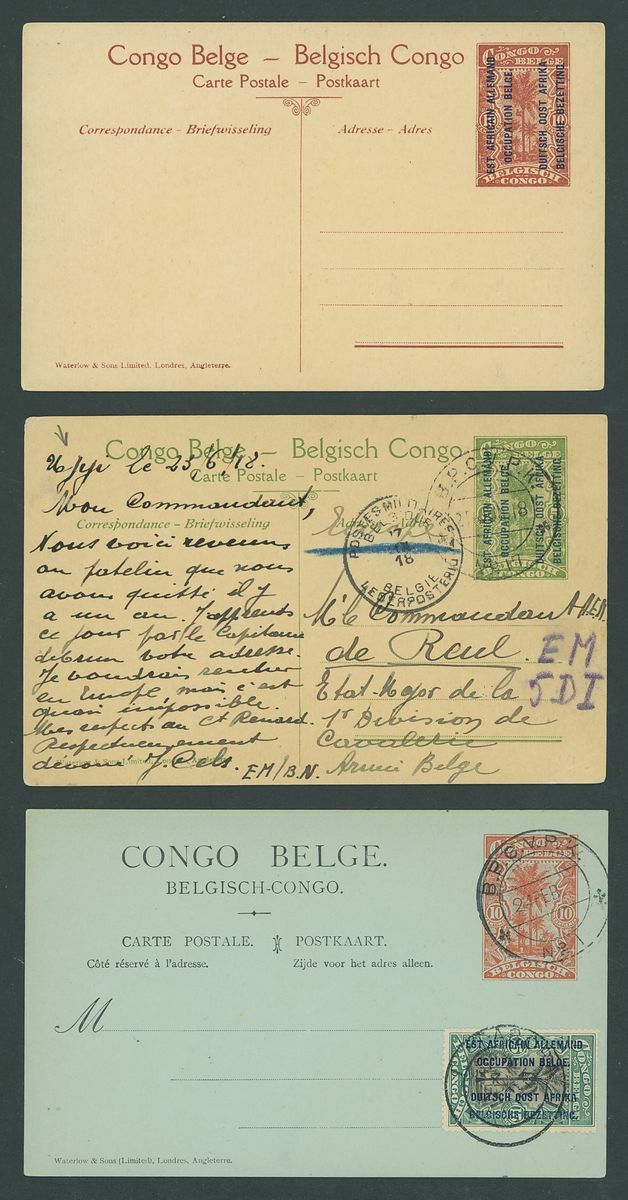 Congo Belge – Belgisch Congo
Carte Postale – Postkaart
Correspondance - Briefwisseling
Adresse - Adres
CONGO BELGE
EST AFRICAIN ALLEMAND
OCCUPATION BELGE.
DUITSCH OOST AFRIKA
BELGISCHE BEZETTING.
BELGISCH CONGO
Waterlow & Sons Limited, Londres, Angleterre.
le 23/6/18.
Congo Belge – Belgisch Congo
Carte Postale – Postkaart
Correspondance - Briefwisseling
EST AFRICAIN ALLEMAND
OCCUPATION BELGE.
DUITSCH OOST AFRIKA
BELGISCHE BEZETTING.
B.P.C.V.P.K.
POSTES MILITAIRES
BELGIQUE
18
BELGIE
LEGERPOSTERIJ
Mon Commandant,
Nous voici revenus
au patelin que nous
avons quitté il y
a un an. J'apprends
ce jour par le Capitaine
votre adresse.
Je voudrais
en Europe, mais c'est
quasi impossible.
Mes respects au Ct Renard.
Respectueusement
dévoué J. Cels. EM/B.N.
Mr le Commandant A.E.M.
de Reul.
Etat-Major de la
1e Division de
Cavalerie
Armée Belge
EM
5DI
CONGO BELGE.
BELGISCH-CONGO.
CARTE POSTALE. POSTKAART.
Côté réservé à l'adresse. Zijde voor het adres alleen.
M
CONGO BELGE
10 10
BELGISCH CONGO
B.P.C.V.P.K.
21 FEB
EST AFRICAIN ALLEMAND
OCCUPATION BELGE.
DUITSCH OOST AFRIKA
BELGISCHE BEZETTING.
Waterlow & Sons (Limited), Londres, Angleterre.